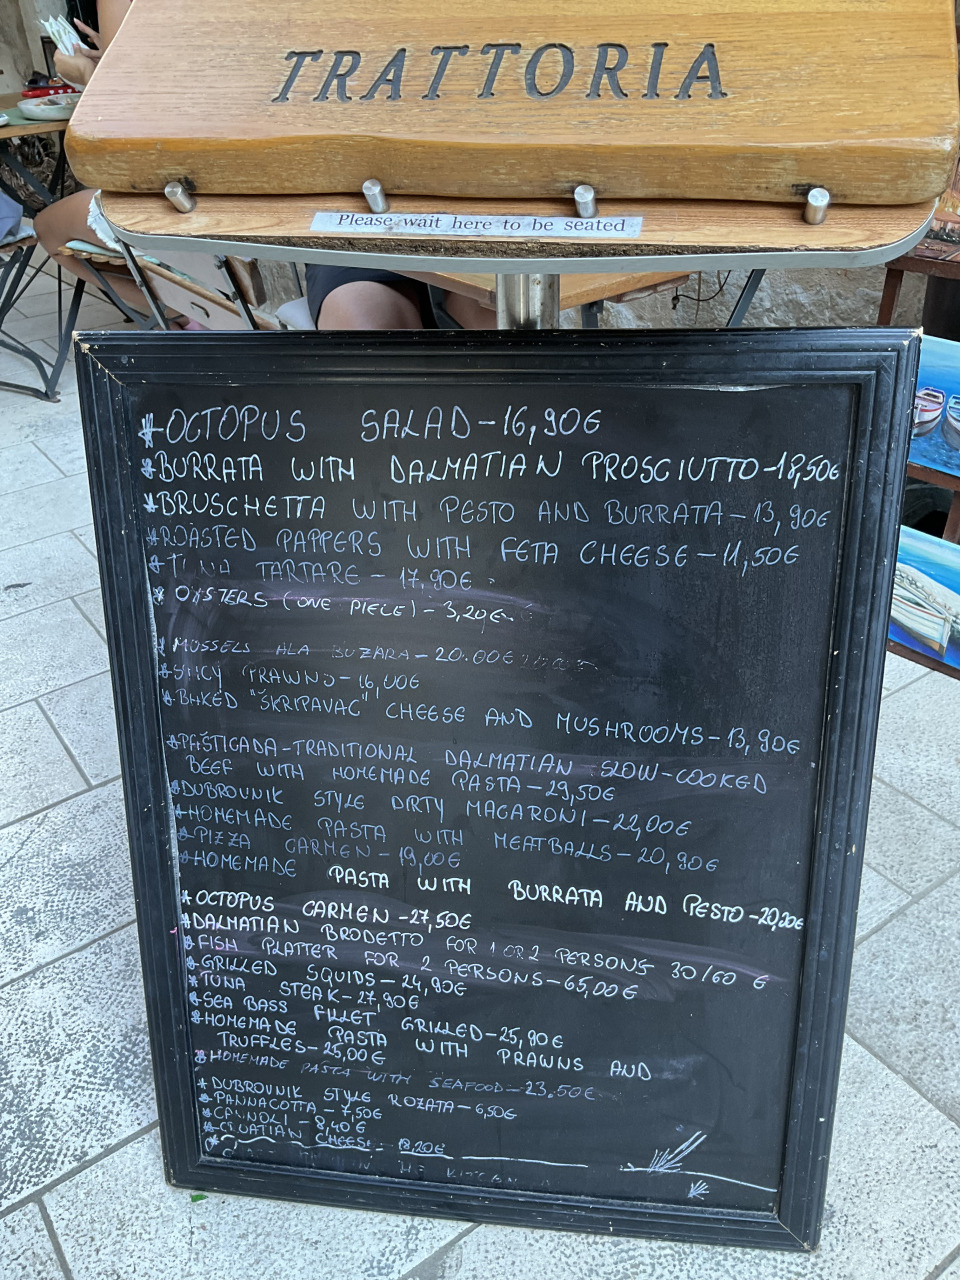 TRATTORIA
Please wait here to be seated
*OCTOPUS SALAD-16,90€
*BURRATA WITH DALMATIAN PROSCIUTTO-18,50€
*BRUSCHETTA WITH PESTO AND BURRATA-13,90€
*ROASTED PAPPERS WITH FETA CHEESE-11,50€
*TUNA TARTARE-17,90€
*OYSTERS (ONE PIECE)-3,20€
*MUSSELS ALA BUZARA-20.00€
*SPICY PRAWNS-16,00€
*BAKED "ŠKRIPAVAC" CHEESE AND MUSHROOMS-13,90€
*PAŠTICADA-TRADITIONAL DALMATIAN SLOW-COOKED
BEEF WITH HOMEMADE PASTA-29,50€
*DUBROVNIK STYLE DIRTY MACARONI-22,00€
*HOMEMADE PASTA WITH MEATBALLS-20,90€
*PIZZA CARMEN-19,00€
*HOMEMADE PASTA WITH BURRATA AND PESTO-20,20€
*OCTOPUS CARMEN-27,50€
*DALMATIAN BRODETTO FOR 1 OR 2 PERSONS 30/60 €
*FISH PLATTER FOR 2 PERSONS-65,00€
*GRILLED SQUIDS-24,90€
*TUNA STEAK-27,90€
*SEA BASS FILLET GRILLED-25,90€
*HOMEMADE PASTA WITH PRAWNS AND
TRUFFLES-25,00€
*HOMEMADE PASTA WITH SEAFOOD-23,50€
*DUBROVNIK STYLE ROZATA-6,50€
*PANNACOTTA-7,50€
*CANNOLI-8,40€
*CROATIAN CHEESE-18,20€